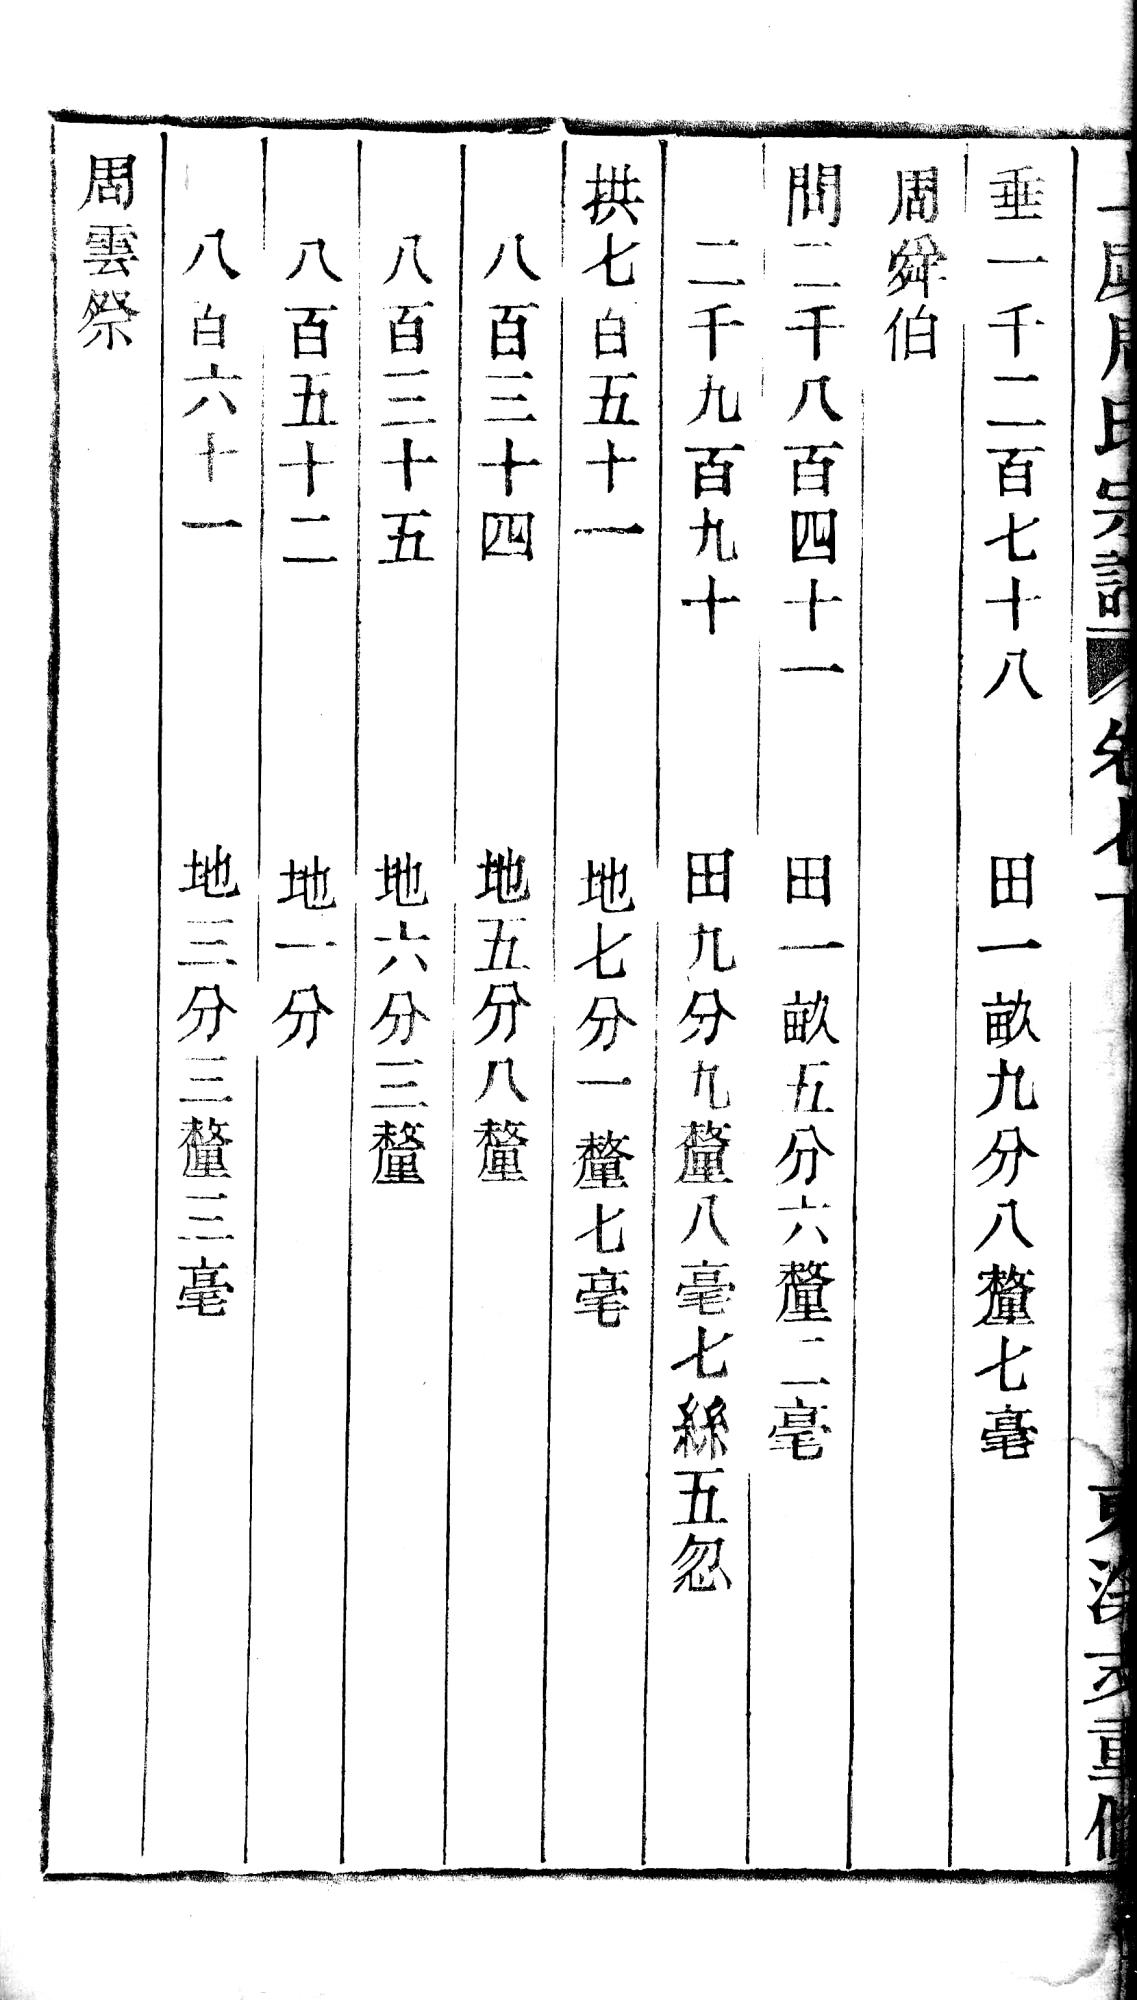 周氏宗譜 卷 重修
垂一千二百七十八 田一畝九分八釐七毫
周舜伯
問二千八百四十一 田一畝五分六釐二毫
二千九百九十 田九分九釐八毫七絲五忽
拱七百五十一 地七分一釐七毫
八百三十四 地五分八釐
八百三十五 地六分三釐
八百五十二 地一分
八百六十一 地三分三釐三毫
周雲祭